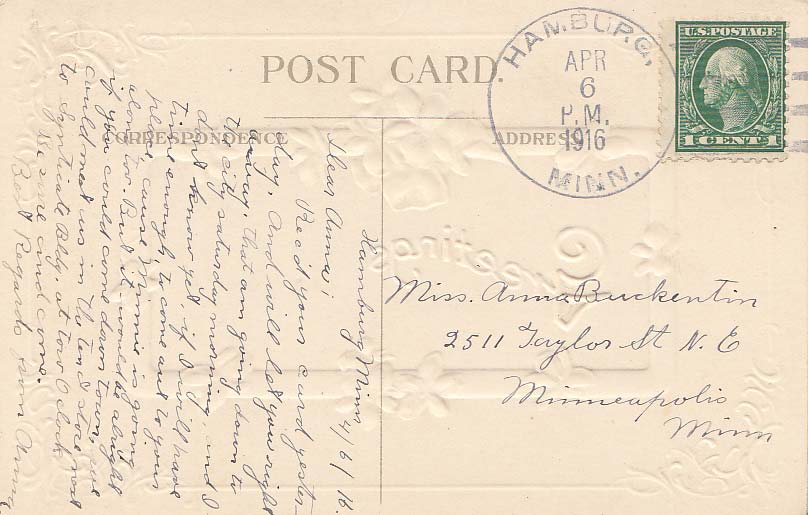 POST CARD.
CORRESPONDENCE
ADDRESS
HAMBURG,
APR
6
P.M.
1916
MINN.
U.S. POSTAGE
1 CENT 1
Greetings
Hamburg Minn 4/6/16.
Dear Anna;
Rec'd your card yester-
day. And will let you right
away, that am going down to
the city Saturday morning, and I
don't know yet if I will have
time enough to come out to your
place, cause Minnie is going
along too. But it would be alright
if you could come down town, we
could meet us in the ten ¢ store next
to Syndicate Bldg. at tow O clock
Be sure and come.
Best Regards from
Miss. Anna Buckentin
2511 Taylor St N. E
Minneapolis
Minn